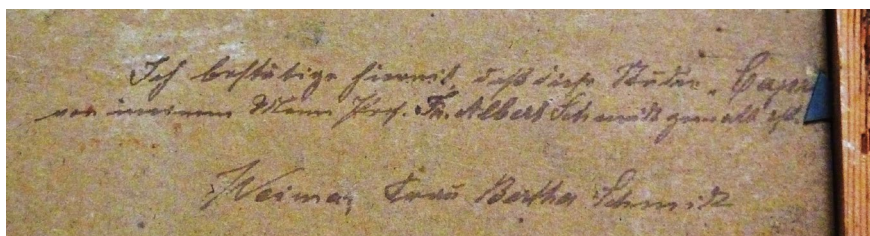 Ich bestätige hiermit, daß diese Studie „Capri
von meinem Mann Prof. Th. Albert Schmidt gemalt ist.
Weimar, Frau Bertha Schmidt